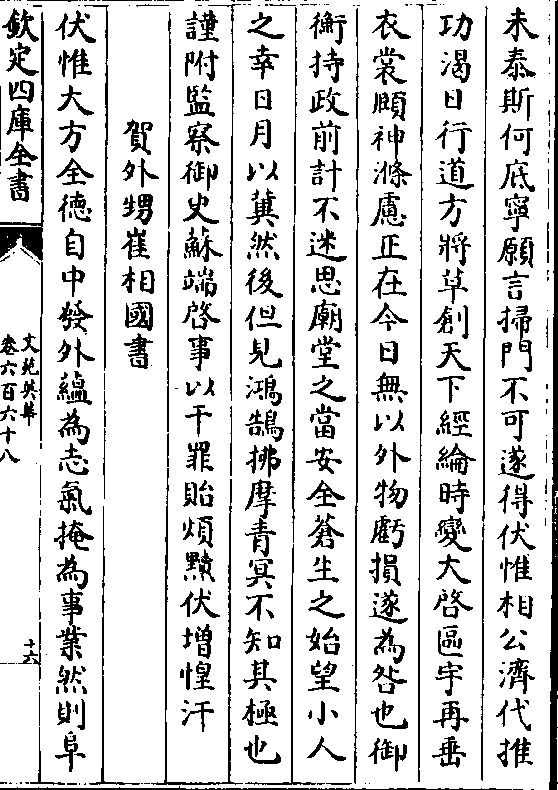 未泰斯何底寧願言掃門不可遂得伏惟相公濟代推
功渴日行道方將草創天下經綸時變大啓區宇再垂
衣裳頤神滌慮正在今日無以外物虧損遂為咎也御
衡持政前計不迷思廟堂之當安全蒼生之始望小人
之幸日月以冀然後但見鴻鵠拂摩青冥不知其極也
謹附監察御史蘇端啓事以干罪貽煩黷伏增惶汗
賀外甥崔相國書
伏惟大方全德自中發外緼為志氣掩為事業然則阜
欽定四庫全書
文苑英華
卷六百六十八
十六